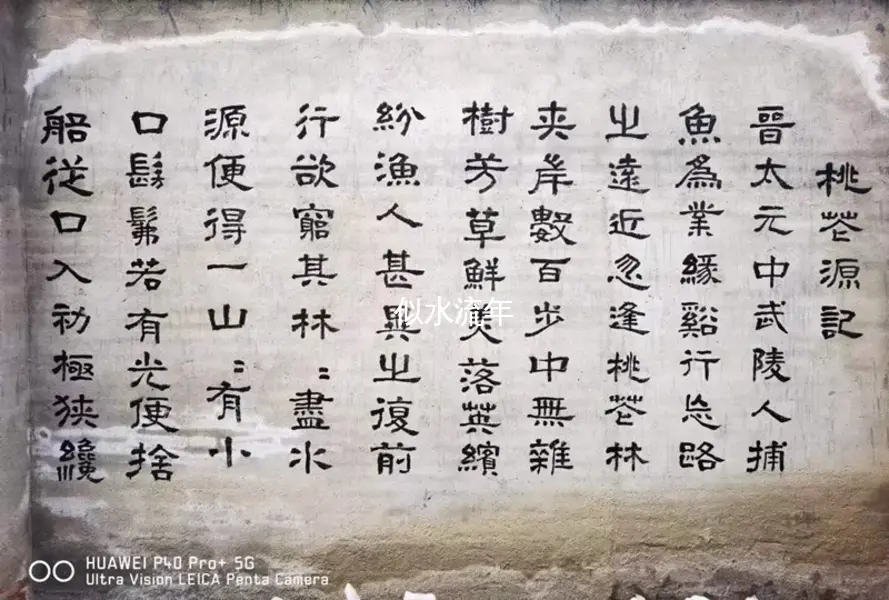 桃花源記
晉太元中武陵人捕
魚為業緣谿行忘路
之遠近忽逢桃花林
夾岸數百步中無雜
樹芳草鮮美落英繽
紛漁人甚異之復前
行欲窮其林〻盡水
源便得一山〻有小
口髣髴若有光便捨
船從口入初極狹纔
似水流年
HUAWEI P40 Pro+ 5G
Ultra Vision LEICA Penta Camera